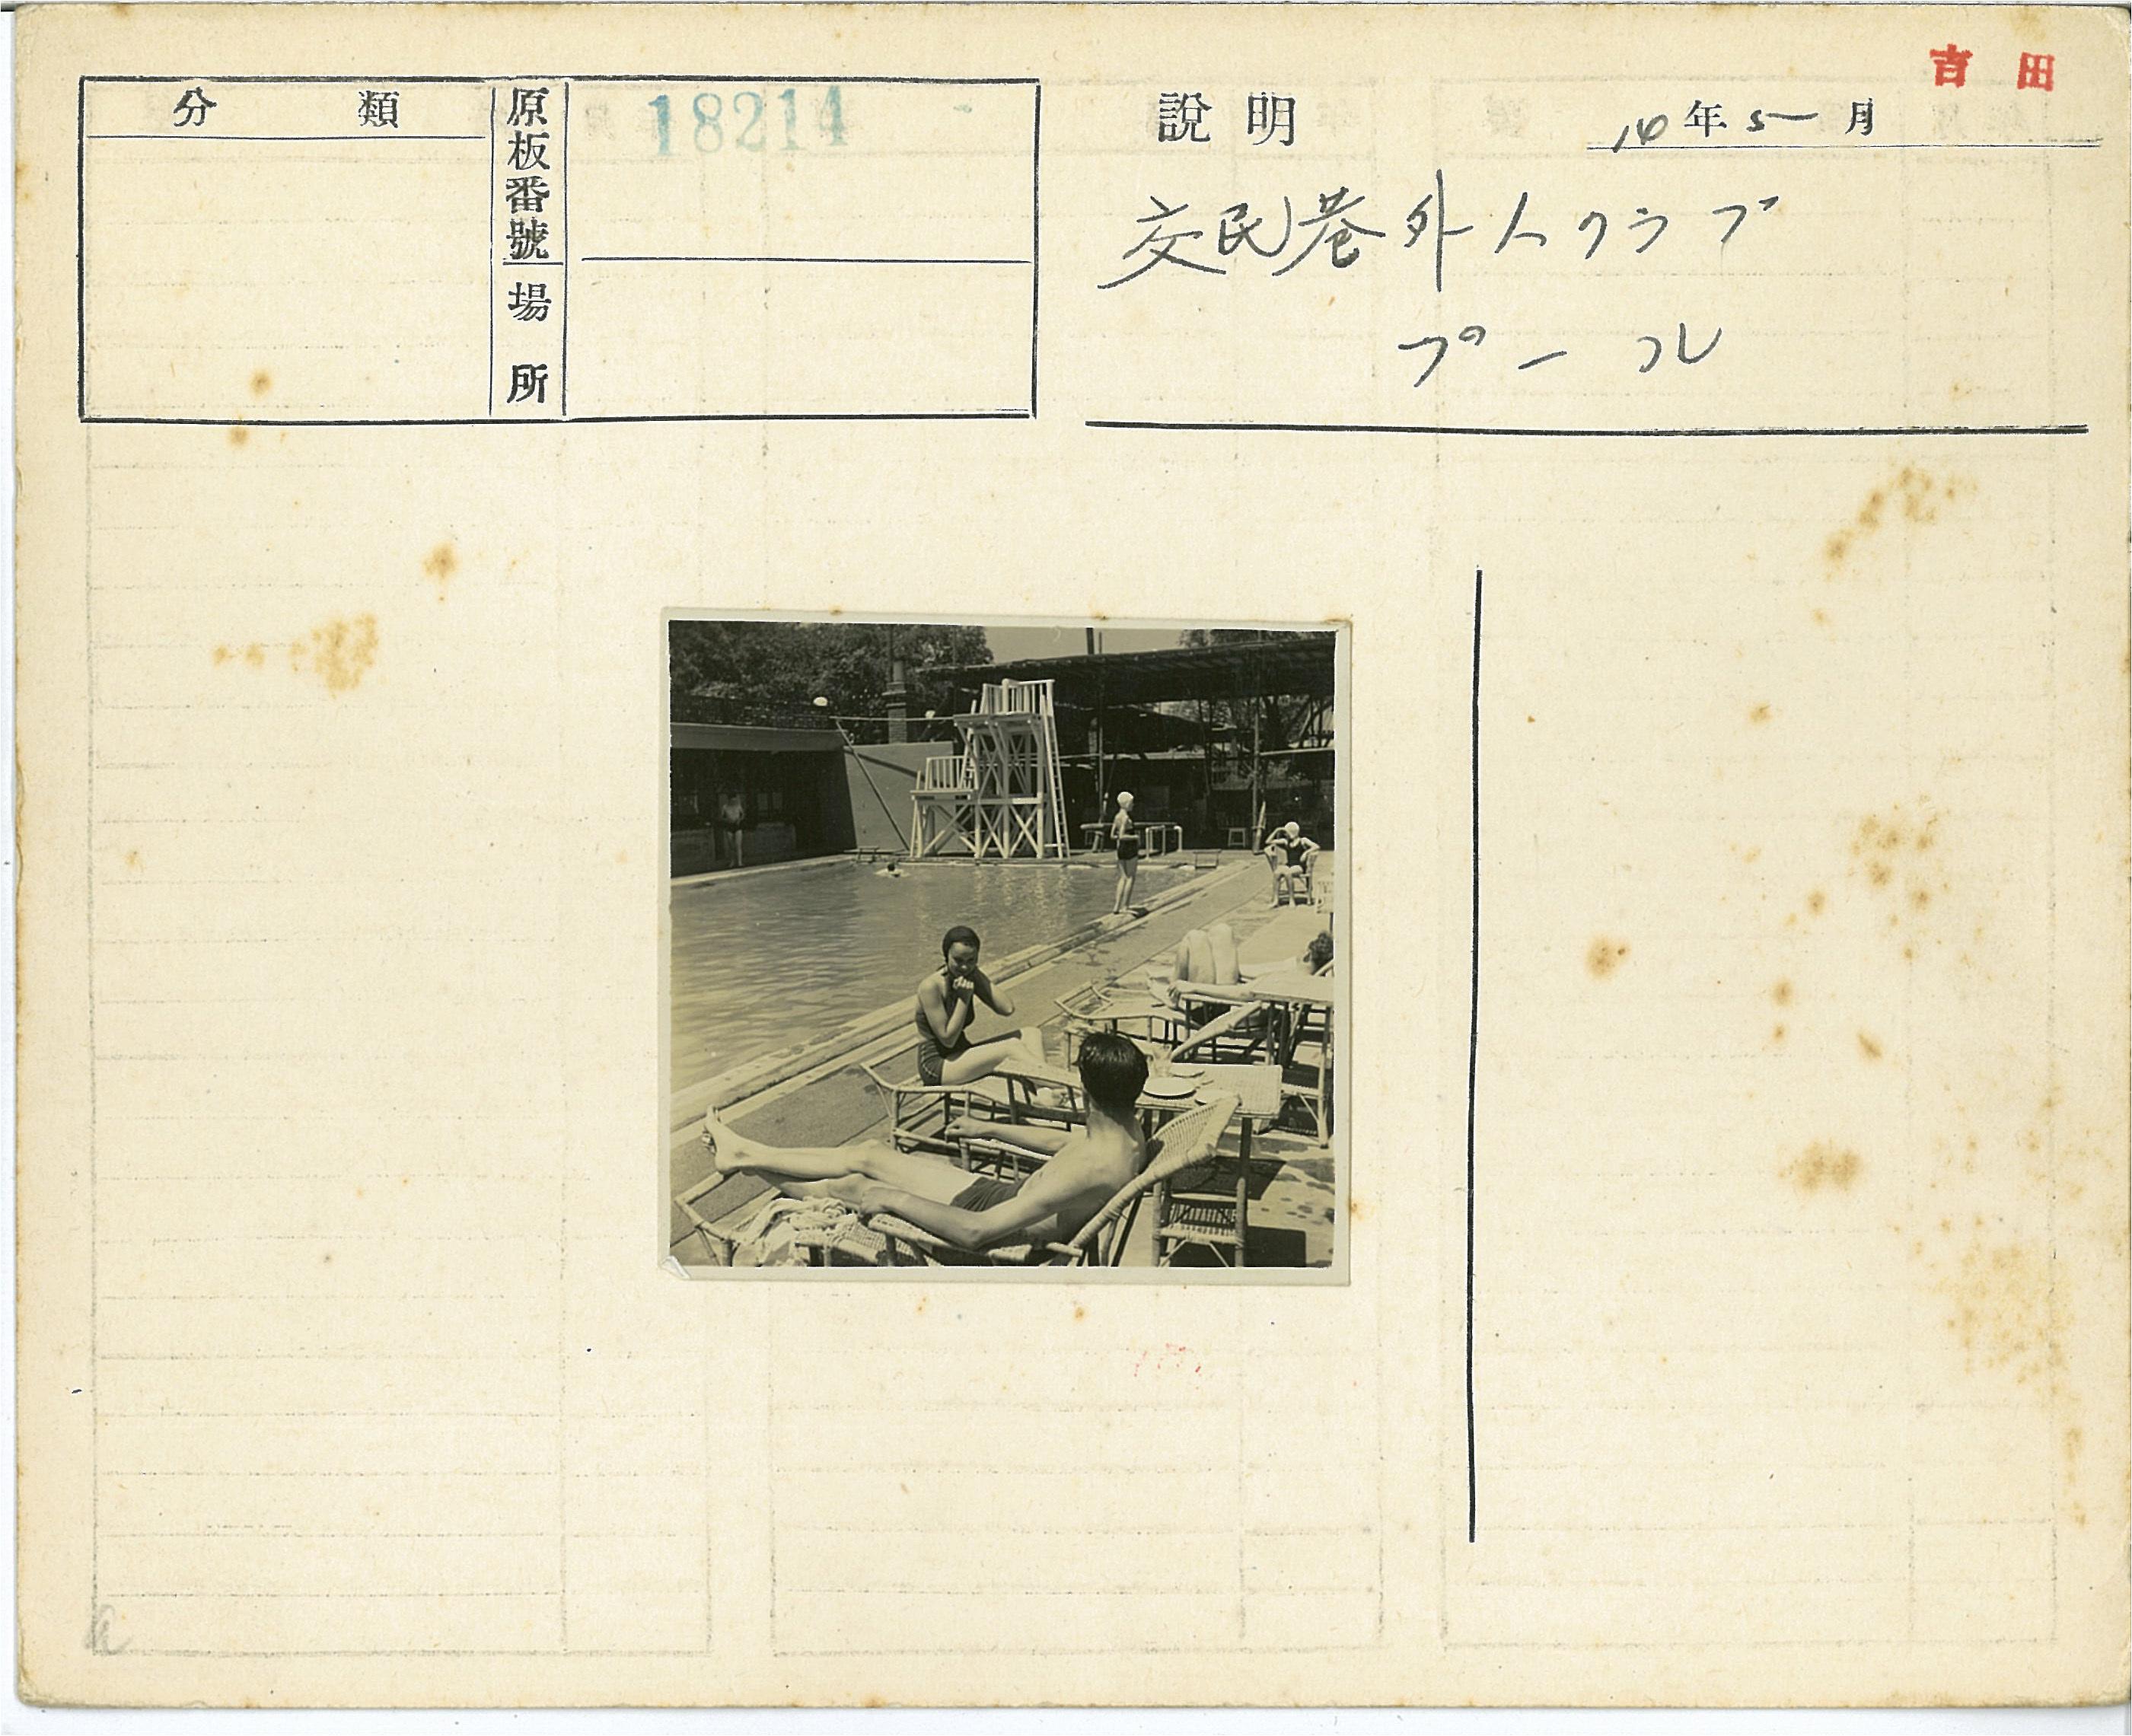 吉田
分類
原板番號
18214
場所
說明
14年5月
交民巷外人クラブ
プール